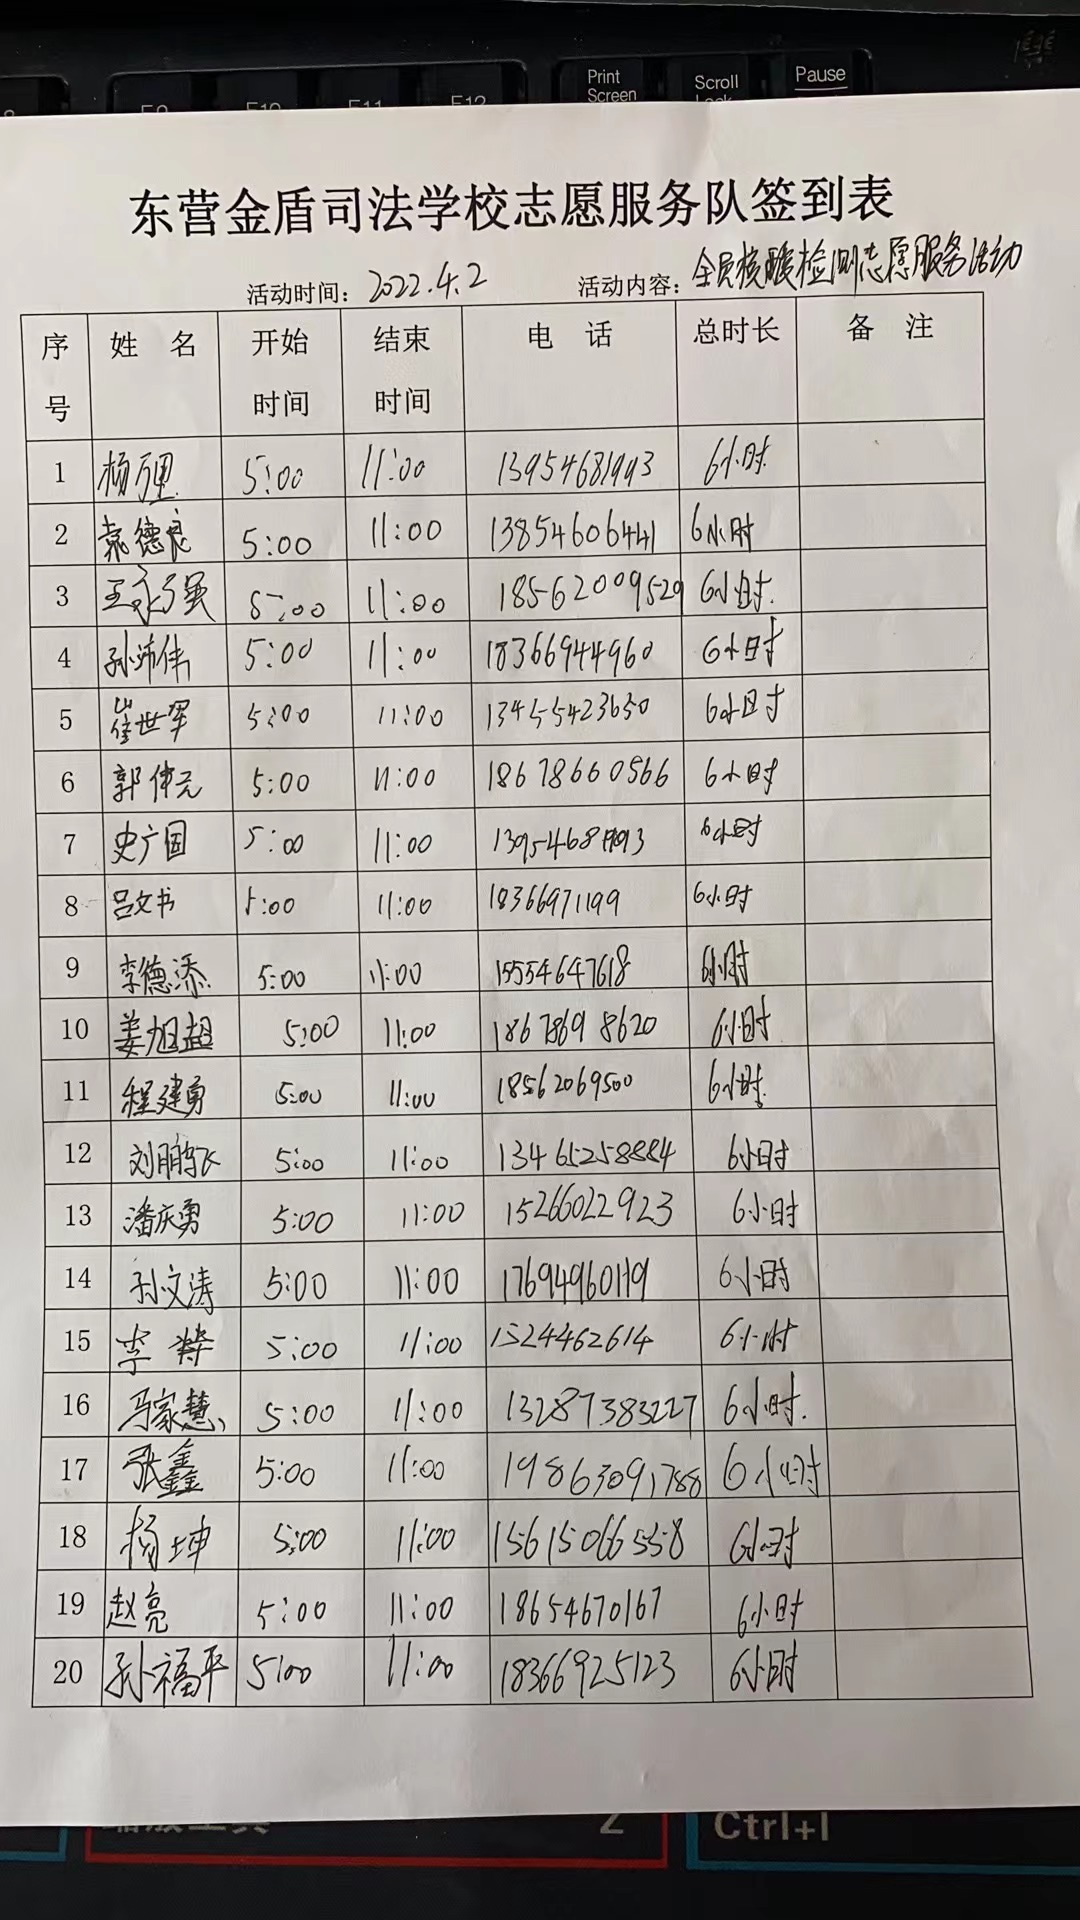 Print
Screen
Scroll
Pause
F9 F10 F11 F12
东营金盾司法学校志愿服务队签到表
活动时间：2022.4.2 活动内容：全员核酸检测志愿服务活动
序号 姓名 开始时间 结束时间 电话 总时长 备注
1 杨万里 5:00 11:00 13954681993 6小时
2 袁德良 5:00 11:00 13854606441 6小时
3 王永强 5:00 11:00 18562009529 6小时.
4 孙沛伟 5:00 11:00 18366944960 6小时
5 崔世军 5:00 11:00 13455423650 6小时
6 郭伟元 5:00 11:00 18678660566 6小时
7 史广国 5:00 11:00 6小时
8 吕文书 5:00 11:00 18366971199 6小时
9 李德添 5:00 11:00 15554647618 6小时
10 姜旭超 5:00 11:00 18678698620 6小时
11 程建勇 5:00 11:00 18562069500 6小时
12 刘鹏飞 5:00 11:00 13465258884 6小时
13 潘庆勇 5:00 11:00 15266022923 6小时
14 孙文涛 5:00 11:00 17694960119 6小时
15 李 5:00 11:00 1524462614 6小时
16 冯家慧 5:00 11:00 13287383227 6小时.
17 张鑫 5:00 11:00 19863091788 6小时
18 杨坤 5:00 11:00 15615066558 6小时
19 赵亮 5:00 11:00 18654670167 6小时
20 孙福平 5:00 11:00 18366925123 6小时
Z Ctrl+I